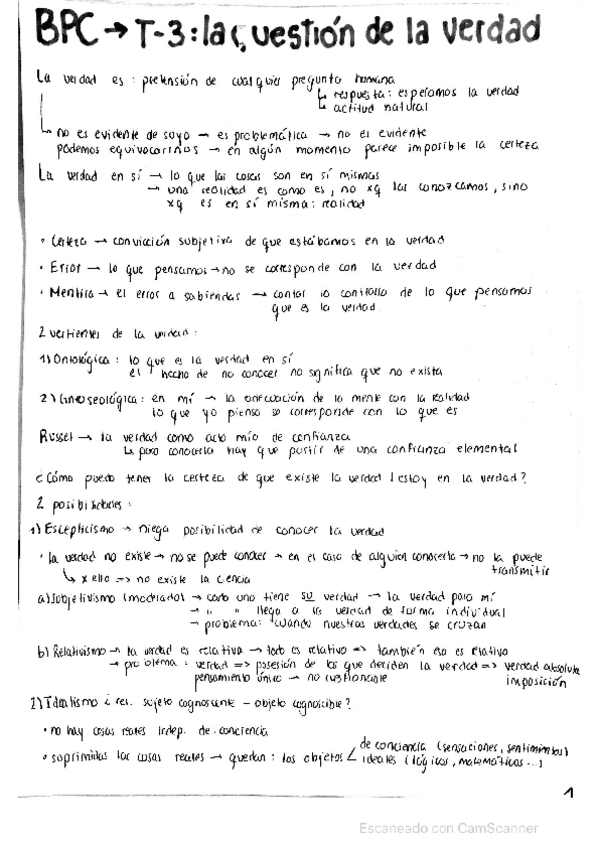 BPC → T-3: la cuestión de la verdad
La verdad es: pretensión de cualquier pregunta humana
↳ respuesta: esperamos la verdad
↳ actitud natural
↳ no es evidente de suyo → es problemática → no es evidente
podemos equivocarnos → en algún momento parece imposible la certeza
La verdad en sí → lo que las cosas son en sí mismas
→ una realidad es como es, no xq las conozcamos, sino
xq es en sí misma: realidad
• Certeza → convicción subjetiva de que estábamos en la verdad
• Error → lo que pensamos → no se corresponde con la verdad
• Mentira → el error a sabiendas → contar lo contrario de lo que pensamos
que es la verdad
2 vertientes de la verdad:
1) Ontológica: lo que es la verdad en sí
el hecho de no conocer no significa que no exista
2) Gnoseológica: en mí → la adecuación de la mente con la realidad
lo que yo pienso se corresponde con lo que es
Russel → la verdad como acto mío de confianza
↳ para conocerla hay que partir de una confianza elemental
¿Cómo puedo tener la certeza de que existe la verdad / estoy en la verdad?
2 posibilidades:
1) Escepticismo → niega posibilidad de conocer la verdad
• la verdad no existe → no se puede conocer → en el caso de alguien conocerla → no la puede
transmitir
↳ x ello => no existe la ciencia
a) Subjetivismo (moderado) → cada uno tiene SU verdad → la verdad para mí
→ " " llega a la verdad de forma individual
→ problema: cuando nuestras verdades se cruzan
b) Relativismo → la verdad es relativa → todo es relativo => también eso es relativo
→ problema: verdad => posesión de los que deciden la verdad => verdad absoluta
imposición
pensamiento único → no cuestionable
2) Idealismo ¿rel. sujeto cognoscente - objeto cognoscible?
• no hay cosas reales indep. de conciencia
• suprimidas las cosas reales → quedan: los objetos < de conciencia (sensaciones, sentimientos)
ideales (lógicos, matemáticos...)
1
Escaneado con CamScanner